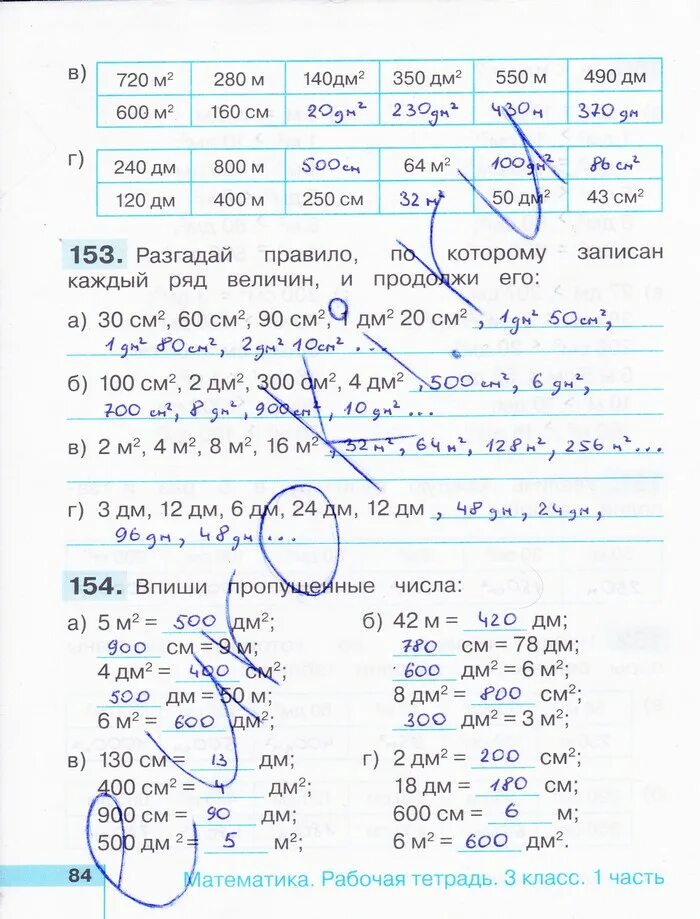 в) 720 м² 280 м 140дм² 350 дм² 550 м 490 дм
600 м² 160 см 20дм² 230дм² 430м 370 дм
г) 240 дм 800 м 500см 64 м² 100дм² 86см²
120 дм 400 м 250 см 32 м² 50 дм² 43 см²
153. Разгадай правило, по которому записан
каждый ряд величин, и продолжи его:
а) 30 см², 60 см², 90 см², 1 дм² 20 см², 1дм² 50см²,
1дм² 80см², 2дм² 10см² ...
б) 100 см², 2 дм², 300 см², 4 дм², 500 см², 6 дм²,
700 см², 8 дм², 900см², 10 дм² ...
в) 2 м², 4 м², 8 м², 16 м², 32 м², 64 м², 128 м², 256 м² ...
г) 3 дм, 12 дм, 6 дм, 24 дм, 12 дм, 48 дм, 24 дм,
96 дм, 48 дм ...
154. Впиши пропущенные числа:
а) 5 м² = 500 дм²;
900 см = 9 м;
4 дм² = 400 см²;
500 дм = 50 м;
6 м² = 600 дм²;
б) 42 м = 420 дм;
780 см = 78 дм;
600 дм² = 6 м²;
8 дм² = 800 см²;
300 дм² = 3 м²;
в) 130 см = 13 дм;
400 см² = 4 дм²;
900 см = 90 дм;
500 дм² = 5 м²;
г) 2 дм² = 200 см²;
18 дм = 180 см;
600 см = 6 м;
6 м² = 600 дм².
84 Математика. Рабочая тетрадь. 3 класс. 1 часть